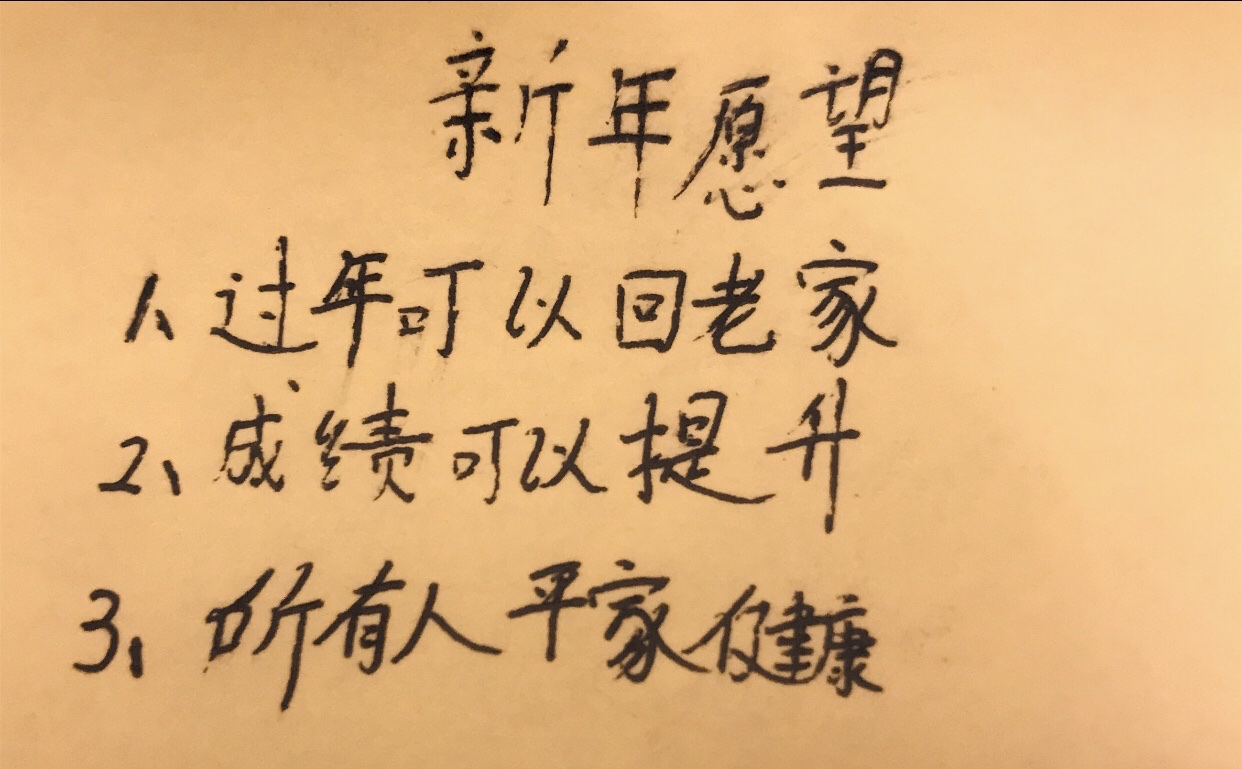 新年愿望
1、过年可以回老家
2、成绩可以提升
3、所有人平家健康